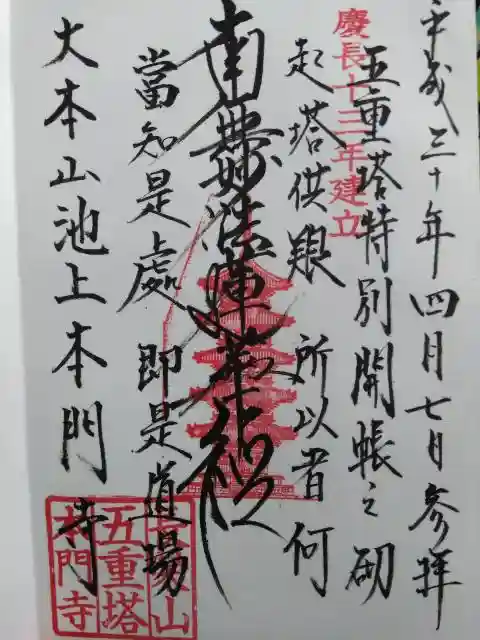 平成三十年四月七日参拝
慶長十三年建立
五重塔特別開帳之砌
起塔供養 所以者何
南無妙法蓮華経
當知是處 即是道場
大本山池上本門寺
五重塔
本門寺